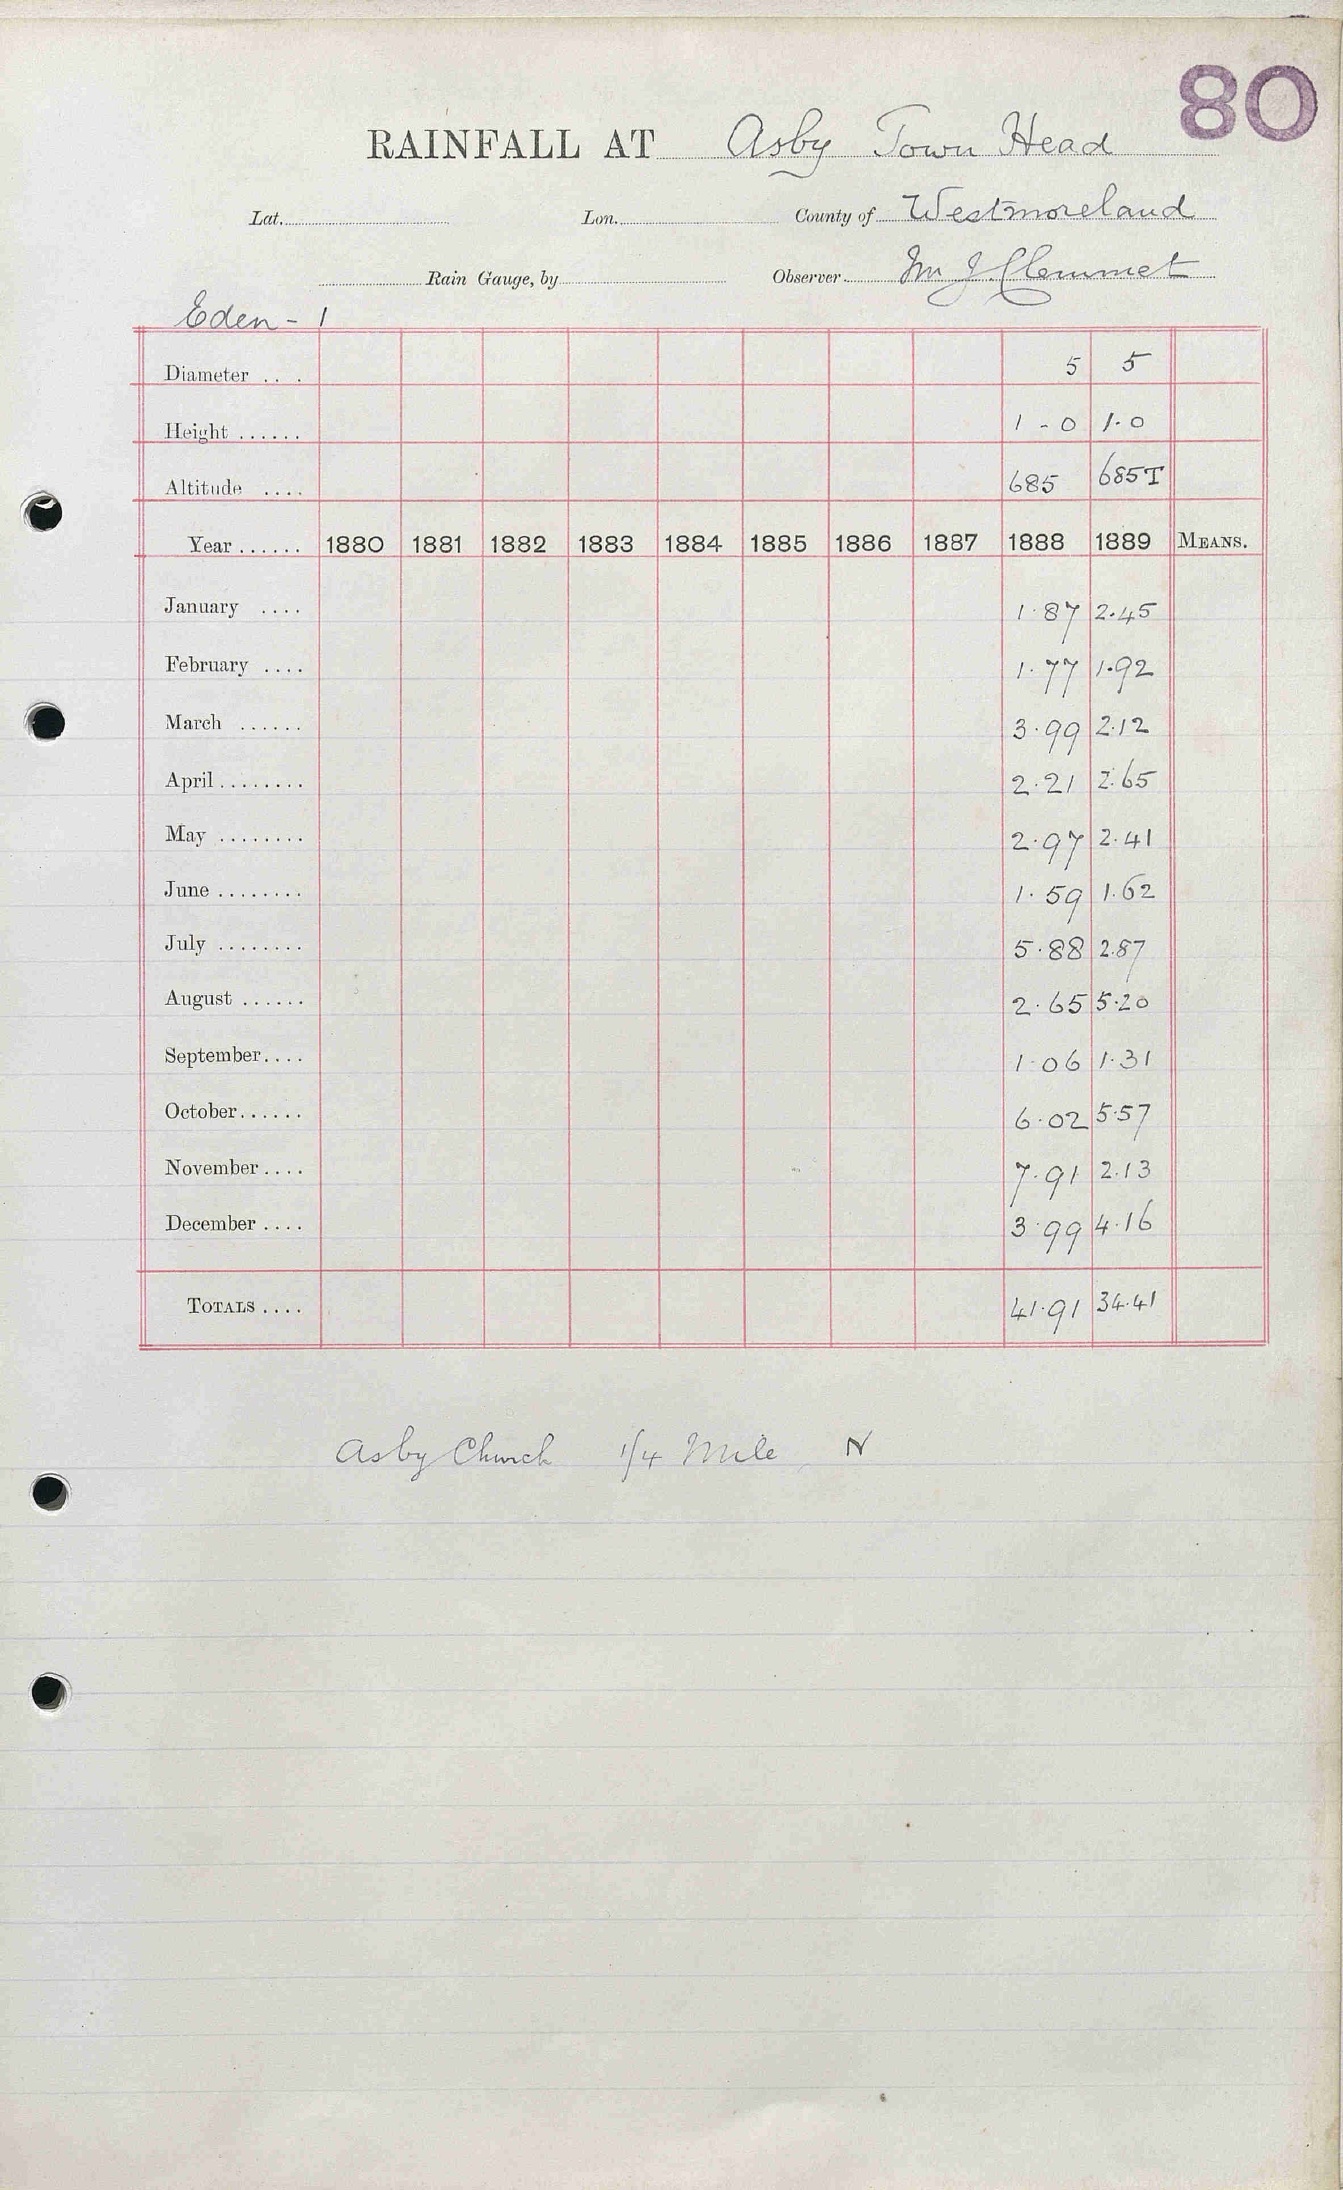 80
RAINFALL AT Asby Town Head
Lat. Lon. County of Westmoreland
Rain Gauge, by Observer Mr J. Clemmet
Eden - 1
Diameter .... 5 5
Height ...... 1-0 1.0
Altitude .... 685 685T
Year ...... 1880 1881 1882 1883 1884 1885 1886 1887 1888 1889 MEANS.
January .... 1.87 2.45
February .... 1.77 1.92
March ...... 3.99 2.12
April ........ 2.21 2.65
May ........ 2.97 2.41
June ........ 1.59 1.62
July ........ 5.88 2.87
August ...... 2.65 5.20
September .... 1.06 1.31
October ...... 6.02 5.57
November .... 7.91 2.13
December .... 3.99 4.16
TOTALS .... 41.91 34.41
Asby Church 1/4 Mile N